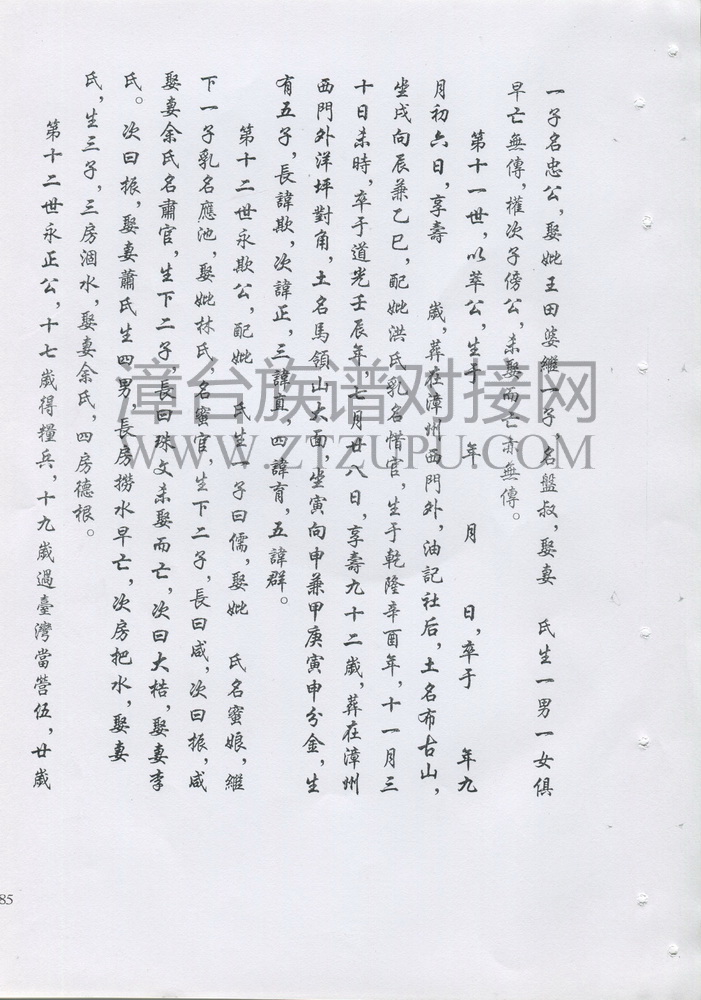 一子名忠公，娶妣王田婆継一子，名盤叔，娶妻　氏生一男一女俱
早亡無傳，權次子傍公，未娶而亡亦無傳。
第十一世，以萃公，生于　年　月　日，卒于　年九
月初六日，享壽　歲，葬在漳州西門外，油記社后，土名布古山，
坐戌向辰兼乙巳，配妣洪氏乳名惜官，生于乾隆辛酉年，十一月三
十日未時，卒于道光壬辰年，七月廿八日，享壽九十二歲，葬在漳州
西門外洋坪對角，土名馬領山大面，坐寅向申兼甲庚寅申分金，生
有五子，長諱欺，次諱正，三諱直，四諱育，五諱群。
第十二世永欺公，配妣　氏生一子曰儒，娶妣　氏名蜜娘，継
下一子乳名應池，娶妣林氏，名蜜官，生下二子，長曰咸，次曰振，咸
娶妻余氏名肅官，生下二子，長曰珠文未娶而亡，次曰大梏，娶妻李
氏。次曰振，娶妻蕭氏生四男，長房撈水早亡，次房把水，娶妻
氏，生三子，三房涸水，娶妻余氏，四房德根。
第十二世永正公，十七歲得糧兵，十九歲過臺灣當營伍，廿歲
漳台族谱对接网
WWW.ZTZUPU.COM
85